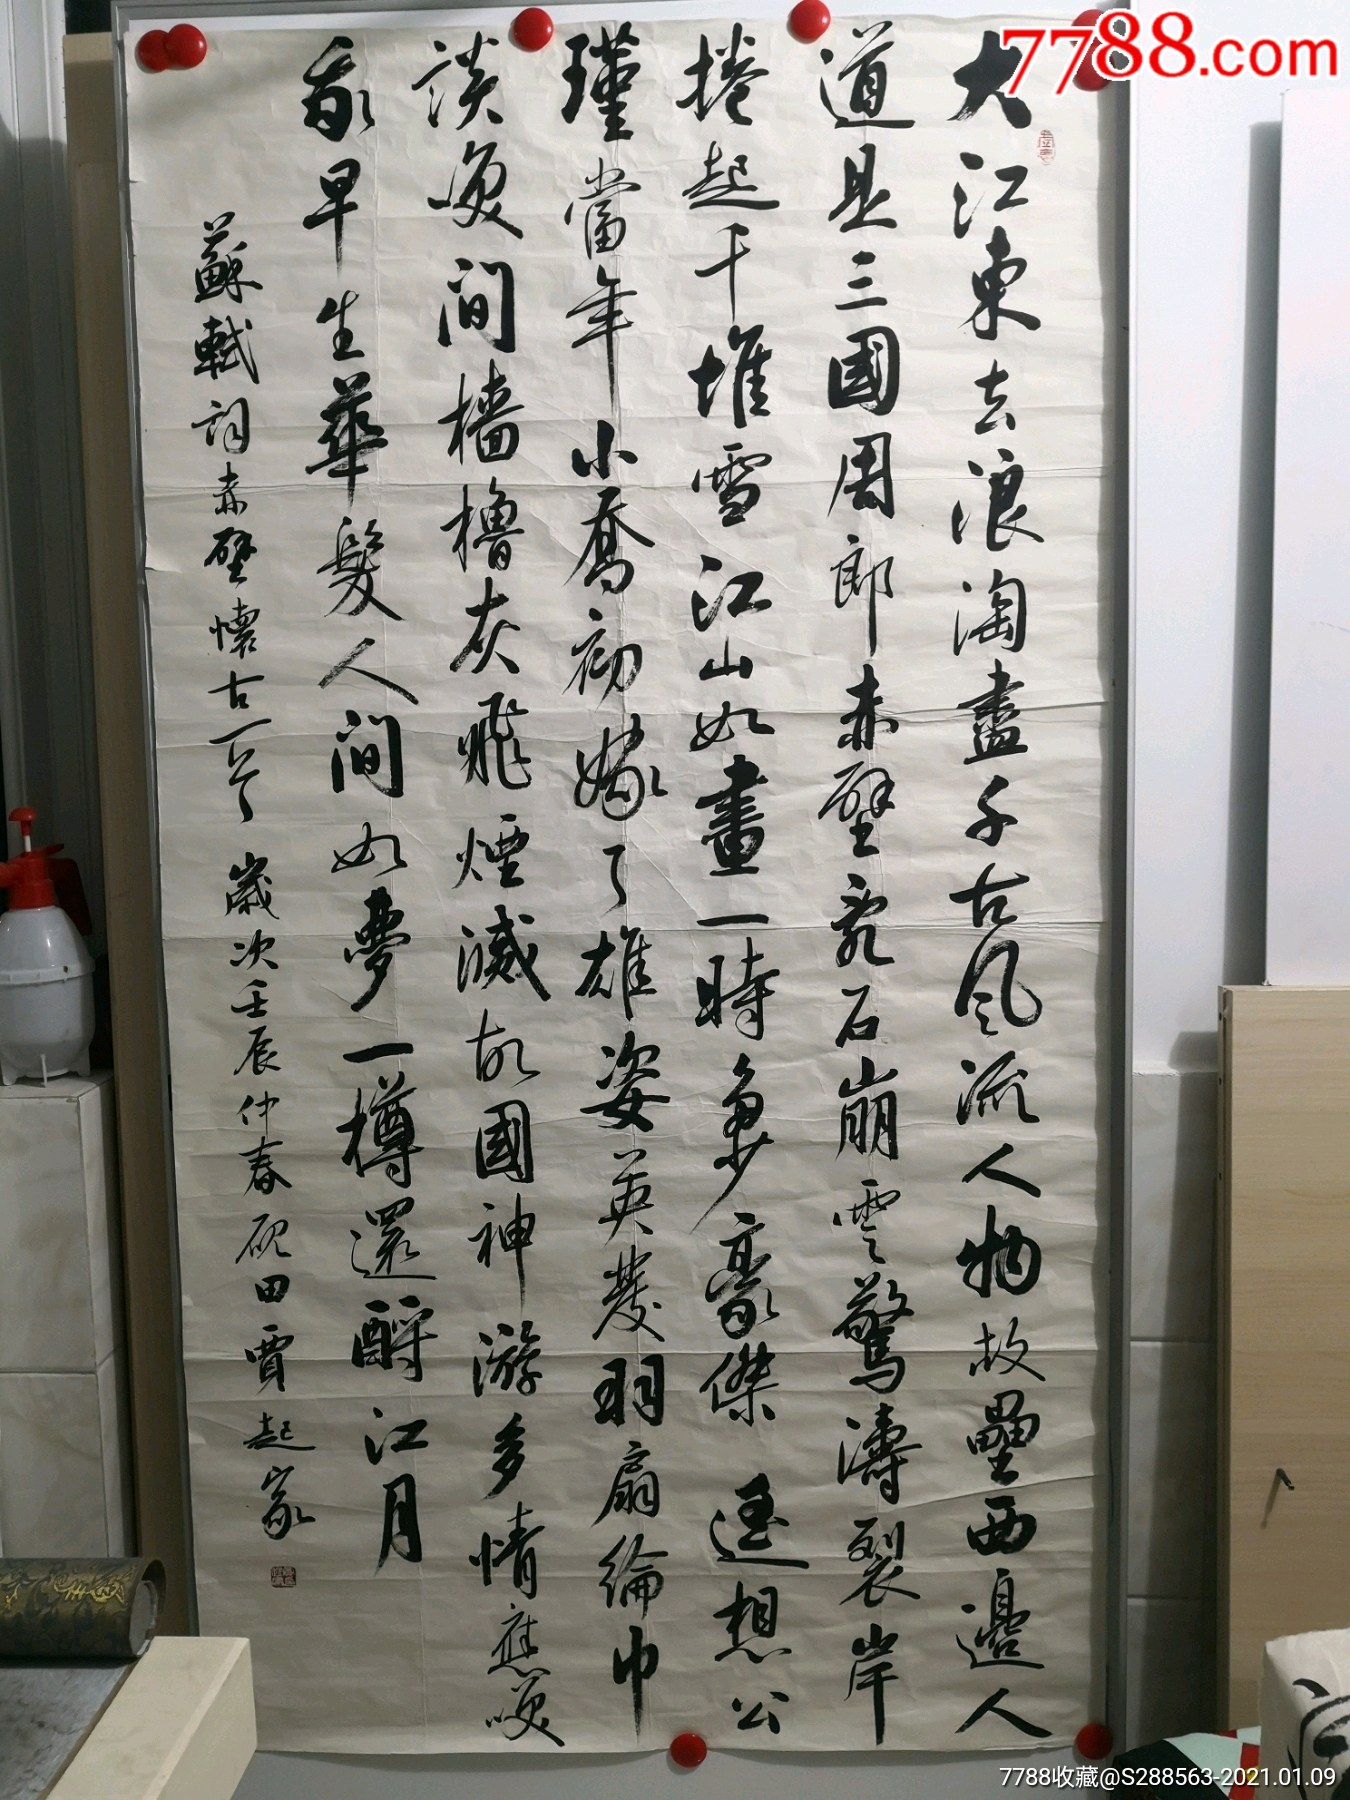 7788.com
大江東去浪淘盡千古風流人物故壘西邊人
道是三國周郎赤壁亂石崩雲驚濤裂岸
捲起千堆雪江山如畫一時多少豪傑遥想公
瑾當年小喬初嫁了雄姿英發羽扇綸巾
談笑間檣櫓灰飛煙滅故國神游多情應笑
我早生華髮人間如夢一樽還酹江月
蘇軾詞赤壁懷古一首歲次壬辰仲春硯田賈起家
7788收藏@S288563-2021.01.09